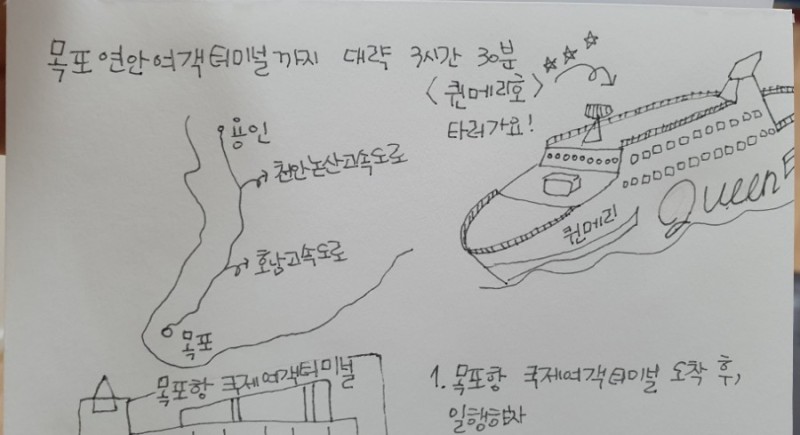 목포연안여객터미널까지 대략 3시간 30분
<퀸메리호>
타러가요!
용인
천안논산고속도로
호남고속도로
목포
퀸메리
Queen
목포항 국제여객터미널
1. 목포항 국제여객터미널 도착 후,
일행합차